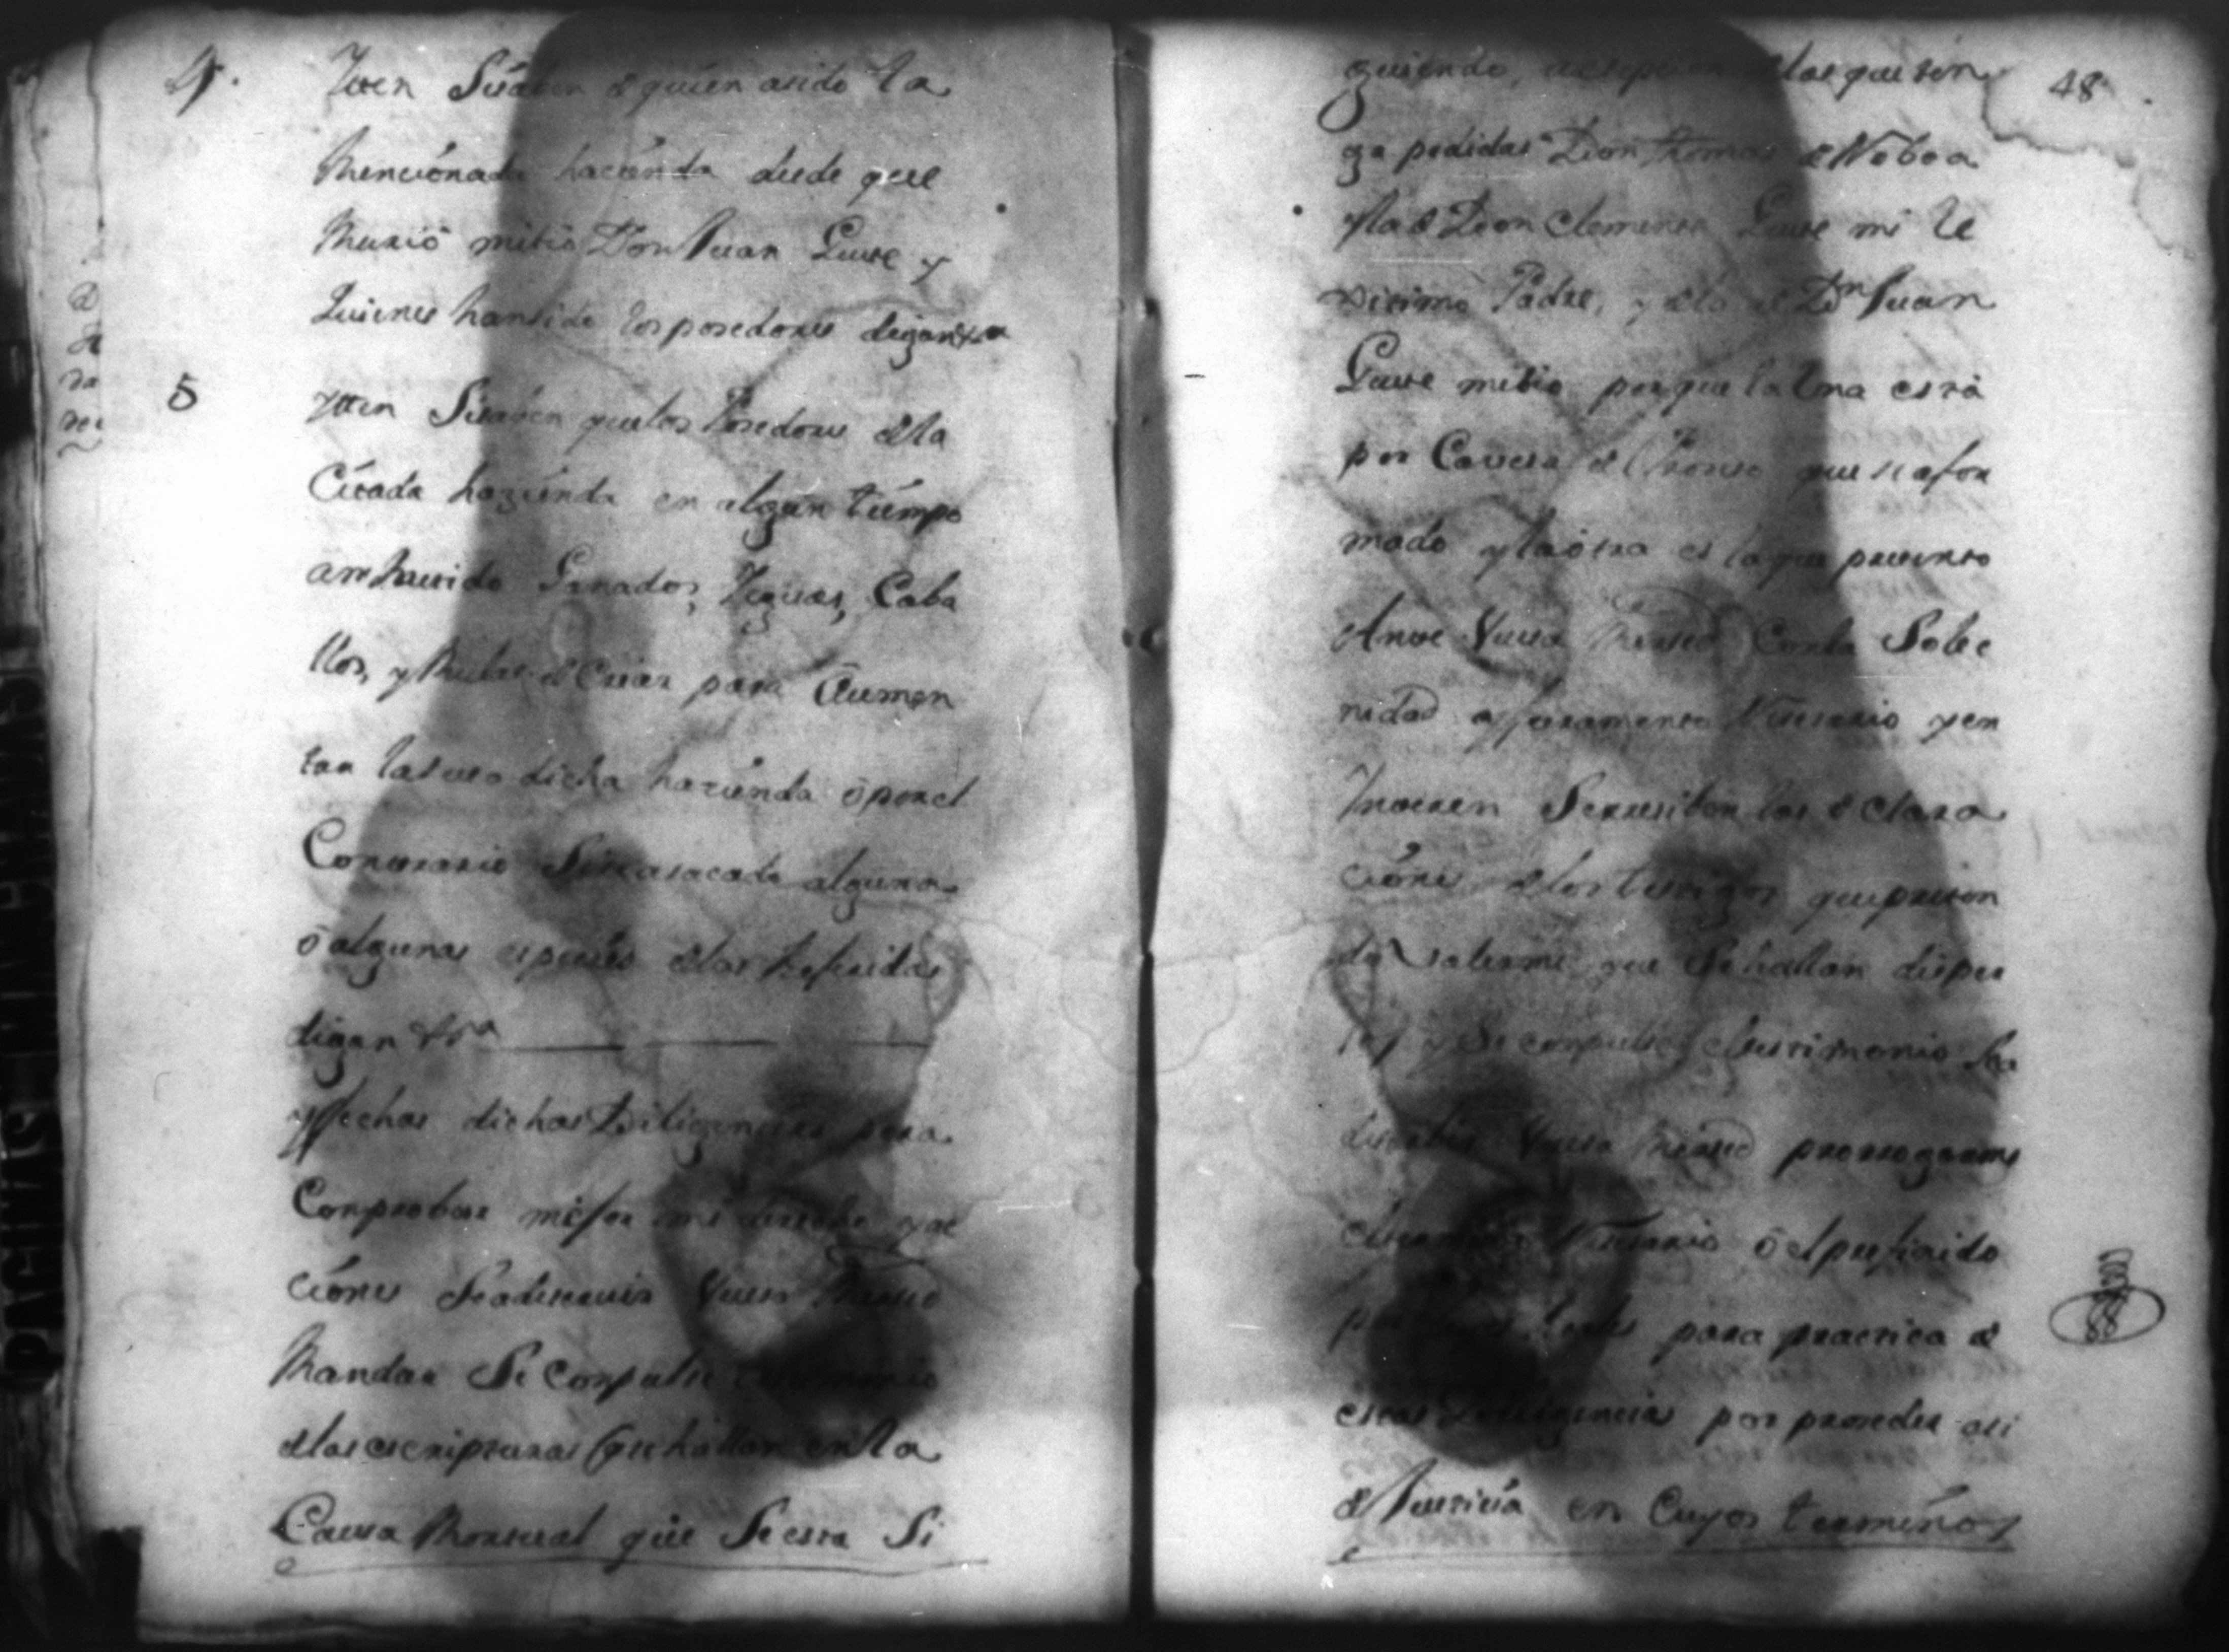 4.
Iten Si saben de quien asido la
Mencionada hacienda desde que
Murió mitio Don Juan Guise y
Quienes hansido los posedores digan &ra
5
Ytten Si saben quelos Posedores dela
Citada hazienda en algun tiempo
anthenido Ganados, Yeguas, Caba
llos, y Mulas de Criar para Aumen
tar lasuso dicha hazienda ó porel
Contrario Sise asacado alguna
ó algunas especies delas Referidas
digan &ra
y fechas dichas Diligencias para
Comprobar mejor mi derecho yac
ciones Seadeservir Vuesa Merced
Mandar Se Compulse testimonio
delas escripturas q̃ se hallan en la
Causa Mortual que Se esta Si
48
guiendo, las que ten
ga pedidas Don Thomas de Noboa
y la de Don Clemente Guise mi Le
xitimo Padre, y de la de Dn Juan
Guise mitio por que la Una está
por Cavesa de Proseso que se a for
mado y la otra es la que presento
Ante Vuesa Merced Con la Sole
nidad y Juramento Nesesario y en
Intexen Se resiben las de Clara
ciones de los testigos que presen
to Valerme que Se hallan disper
sos y Se compulse el testimonio Sea
de servir Vuesa Merced prorrogarme
el termino Nesesario ó el prefinido
por para practica de
estas Diligencias por proseder asi
de Justicia en Cuyos terminos